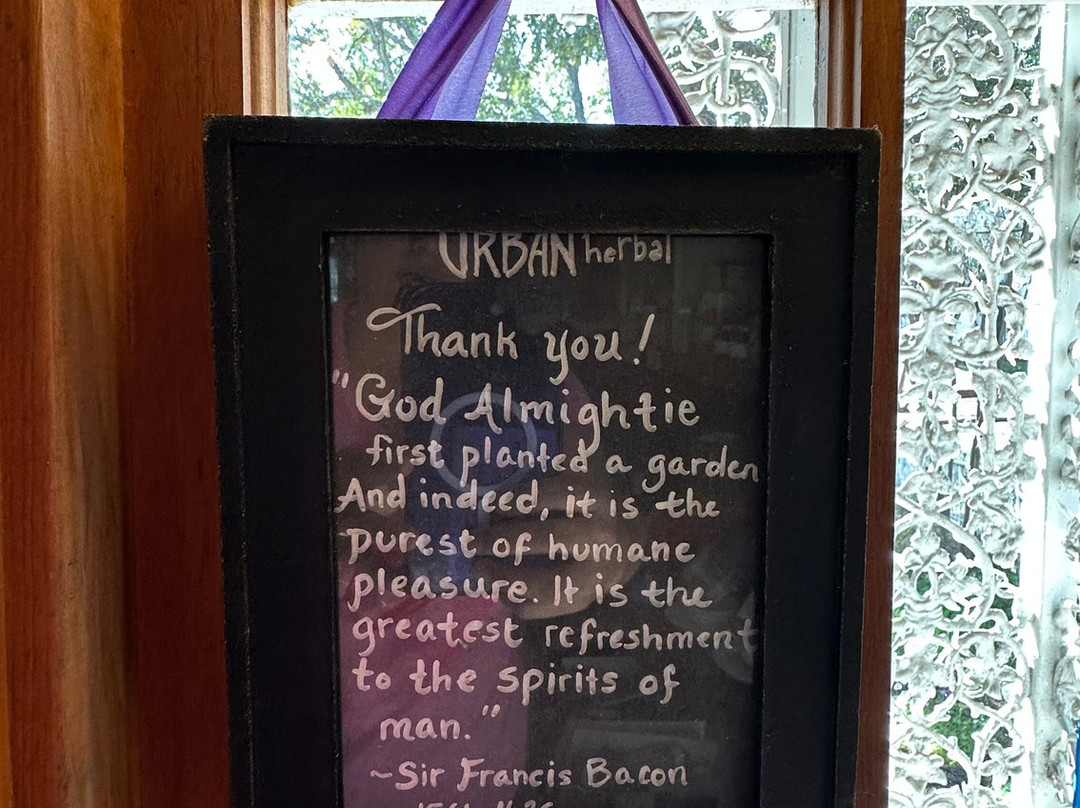 URBAN herbal
Thank you!
"God Almightie
first planted a garden
And indeed, it is the
purest of humane
pleasure. It is the
greatest refreshment
to the spirits of
man."
~Sir Francis Bacon